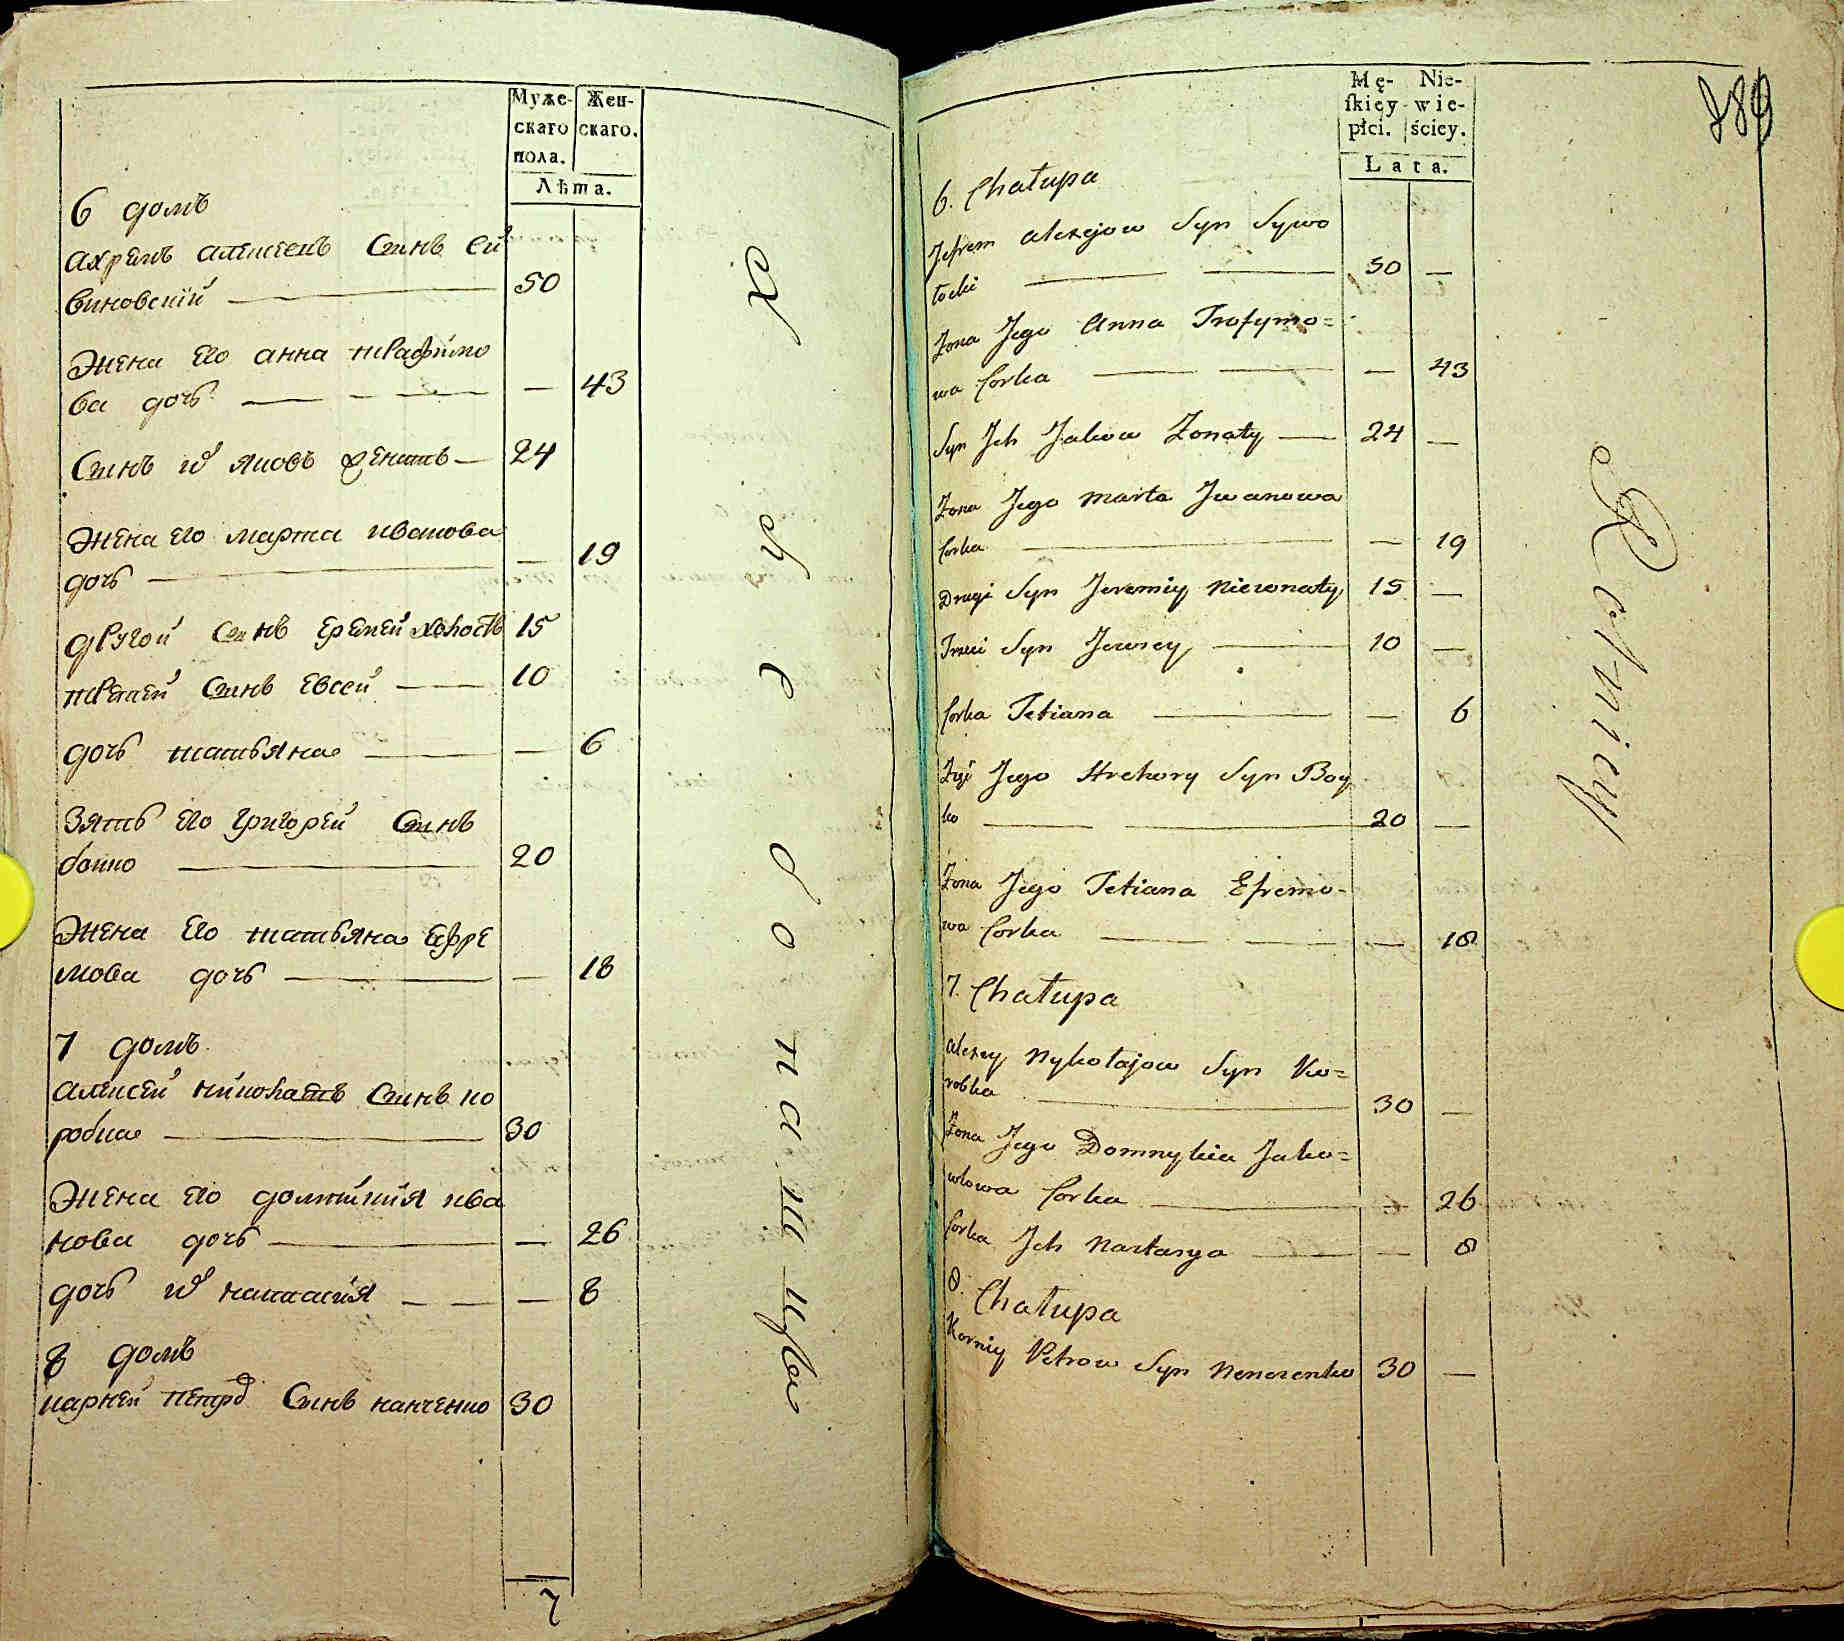 Муже- Жен-
скаго скаго.
пола.
Лѣта.
6 домъ
Ахремъ алексеевъ Синъ си
виновский — 50
Жена его анна трафимо
ва дочь — — 43
Синъ их яковъ женатъ — 24
Жена его марта иванова
дочь — — 19
другой Синъ еремей холостъ 15
третей Синъ евсей — 10
дочь татьяна — — 6
Зять его григорей Синъ
бойко — 20
Жена его татьяна Ефре
мова дочь — — 18
7 домъ
алексей николаевъ Синъ ко
робка — 30
Жена его домникия ива
нова дочь — — 26
дочь их настасия — — 8
8 домъ
карней петров Синъ 30
7
Хлебопашцы
289
Mę- Nie-
skiey wie-
płci. ściey.
Lata.
6. Chałupa
Jefrem Alexejow Syn Sywo
łocki — 50 —
Żona Jego Anna Trofymo=
wa Corka — — 43
Syn Jch Jakow Żonaty — 24 —
Żona Jego Marta Jwanowa
Corka — — 19
Drugi Syn Jeremiy Nieżonaty 15 —
Trzeci Syn Jewsey — 10 —
Corka Tetiana — — 6
Zięć Jego Hrehory Syn Boy
ko — 20 —
Żona Jego Tetiana Efremo-
wa Corka — — 18
7. Chałupa
Alexey Nykołajow Syn Ko=
robka — 30 —
Żona Jego Domnykia Jako=
wlowa Corka — 26
Corka Jch Nastasya — — 8
8. Chałupa
Korniy Petrow Syn 30 —
Rolnicy